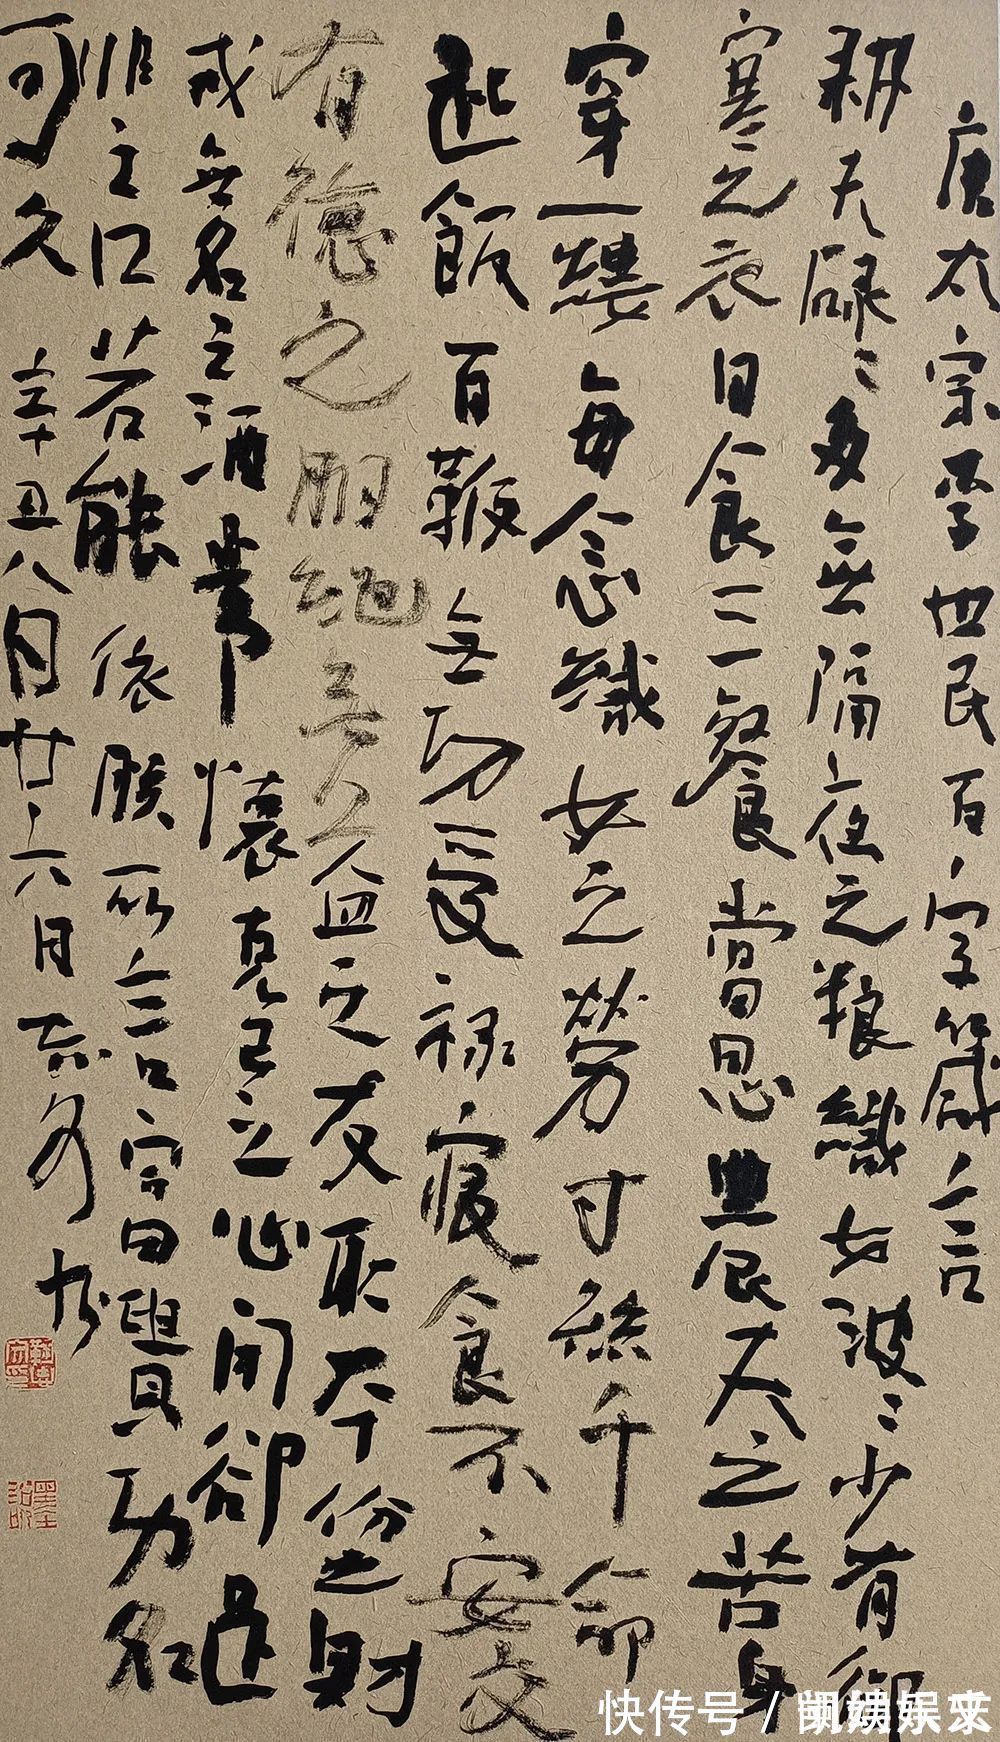 唐太宗李世民百字箴言
耕夫碌〻多無隔夜之粮織女波〻少有御
寒之衣日食三餐當思農夫之苦身
穿一縷每念織女之劳寸絲千命
匙飯百鞭無功受禄寝食不安交
有德之朋绝無益之友取本份之財
戒無名之酒常懷克己之心闭卻是
非之口若能依朕所言富貴功名
可久 辛丑八月廿六日
快传号 /